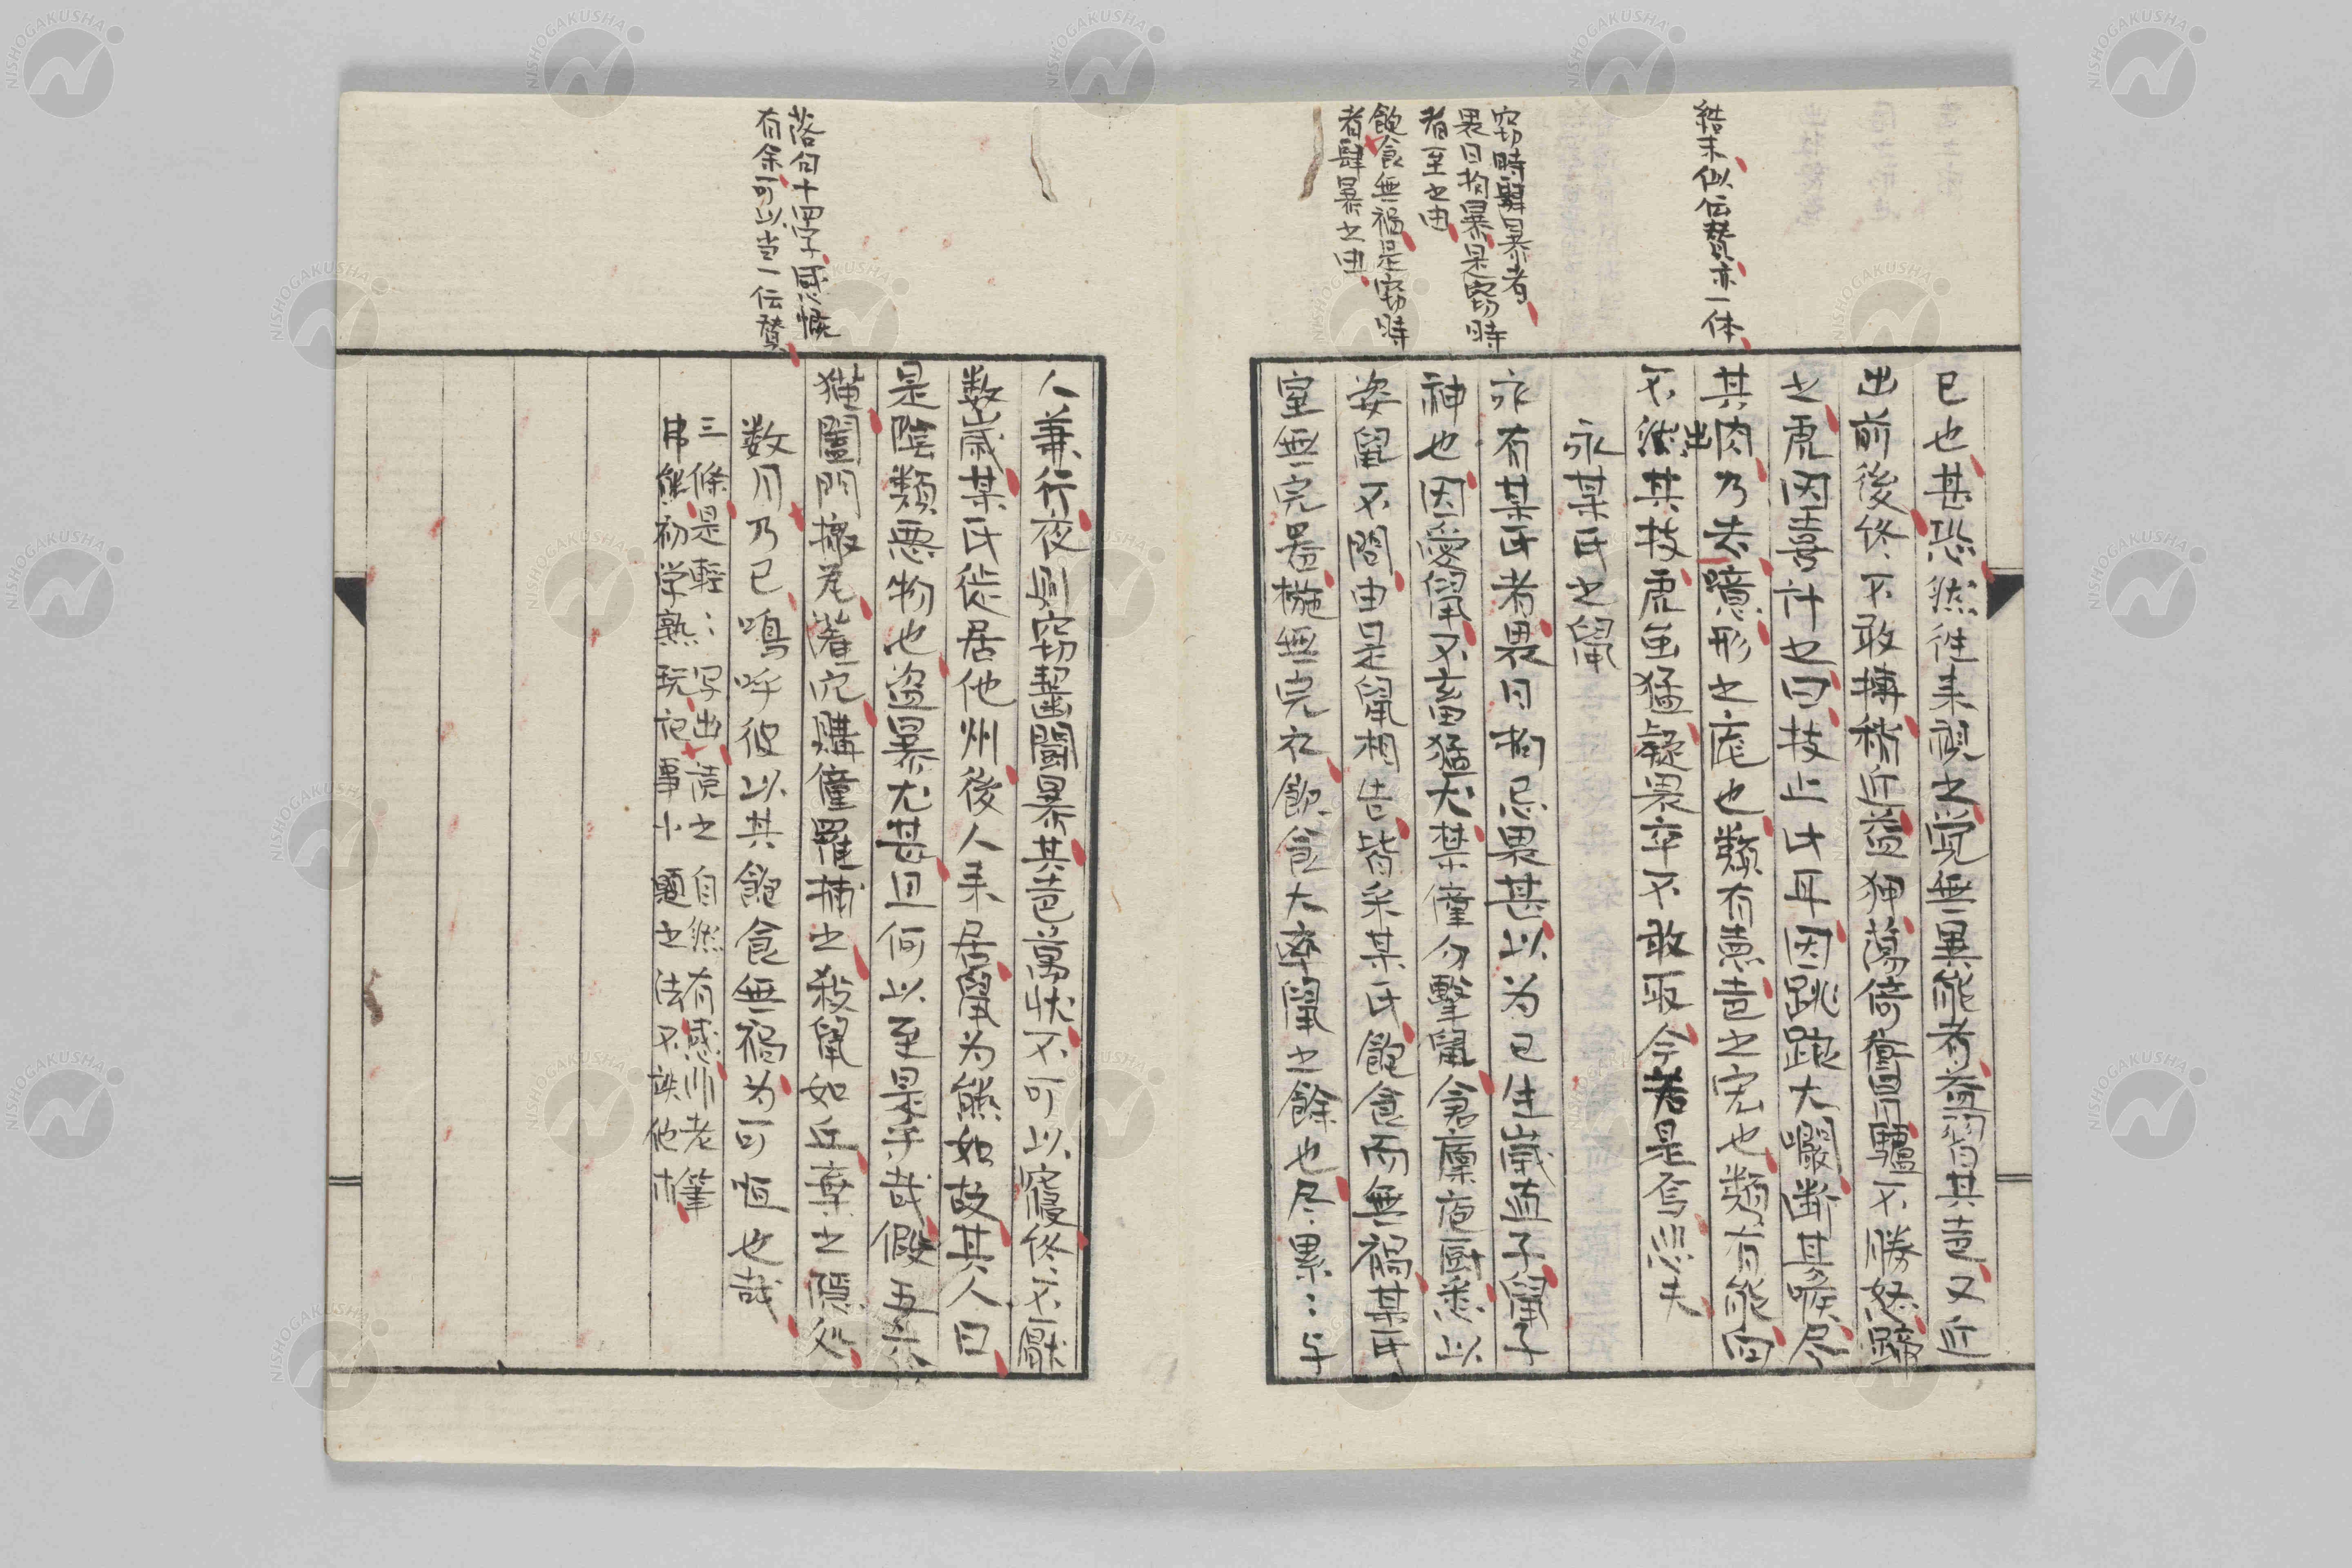 結末似伝賛亦一体
窃時肆暴者
畏日拘暴是窃時
者至之由
飽食無禍是窃時
者肆暴之由
已也甚恐然往来視之覚無異能者益習其声又近
出前後終不敢搏稍近益狎蕩倚衝冒驢不勝怒蹄
之虎因喜計之曰技止此耳因跳踉大㘎断其喉尽
其肉乃去噫形之厖也類有徳声之宏也類有能向
不出其技虎虽猛疑畏卒不敢取今若是焉悲夫
永某氏之鼠
永有某氏者畏日拘忌異甚以为己生歳直子鼠子
神也因愛鼠不畜猫犬禁僮勿擊鼠倉廩庖厨悉以
恣鼠不問由是鼠相告皆来某氏飽食而無禍某氏
室無完器椸無完衣飲食大率鼠之餘也尽累〻与
落句十四字感慨
有余可以当一伝賛
人兼行夜則窃齧闘暴其声萬状不可以寝終不厭
数歳某氏徙居他州後人来居鼠为態如故其人曰
是陰類悪物也盗暴尤甚且何以至是乎哉假五六
猫闔門撤瓦灌穴購僮羅捕之殺鼠如丘棄之隠処
数月乃已嗚呼彼以其飽食無禍为可恒也哉
三條是輕〻写出読之自然有感川老筆
串熊初学熟玩記事小題之法不訣他材
NISHOGAKUSHA